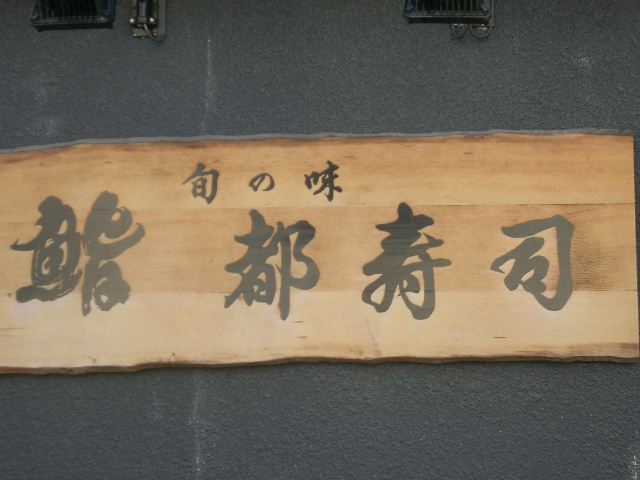 旬の味
鮨 都寿司